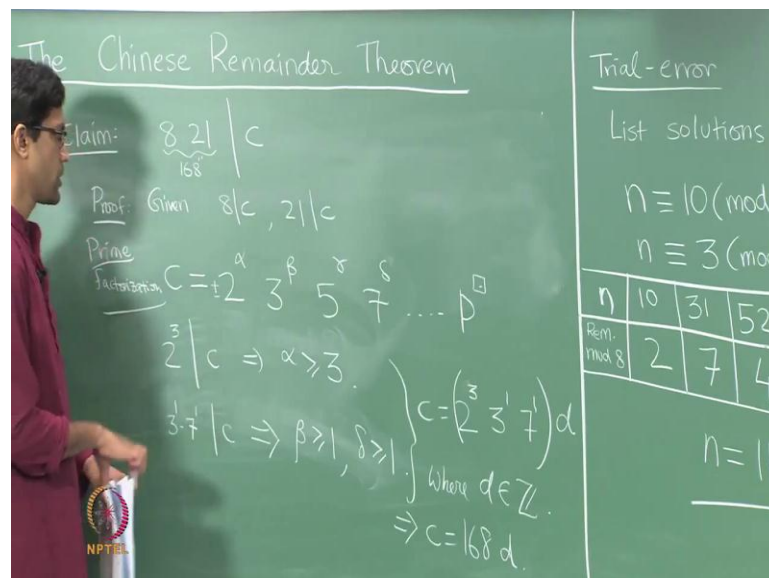 The Chinese Remainder Theorem
Claim: 8 21 | c
168
Proof: Given 8|c , 21|c
Prime
Factorization
c = ±2^α 3^β 5^γ 7^δ .... p^□
2^3 | c ⇒ α ⩾ 3.
3^1·7^1 | c ⇒ β ⩾ 1, δ ⩾ 1.
} c = (2^3 3^1 7^1) d
where d ∈ ℤ.
⇒ c = 168 d.
Trial-error
List solutions
n ≡ 10 (mod
n ≡ 3 (mo
n 10 31 52
Rem. mod 8 2 7 4
n = 1
NPTEL